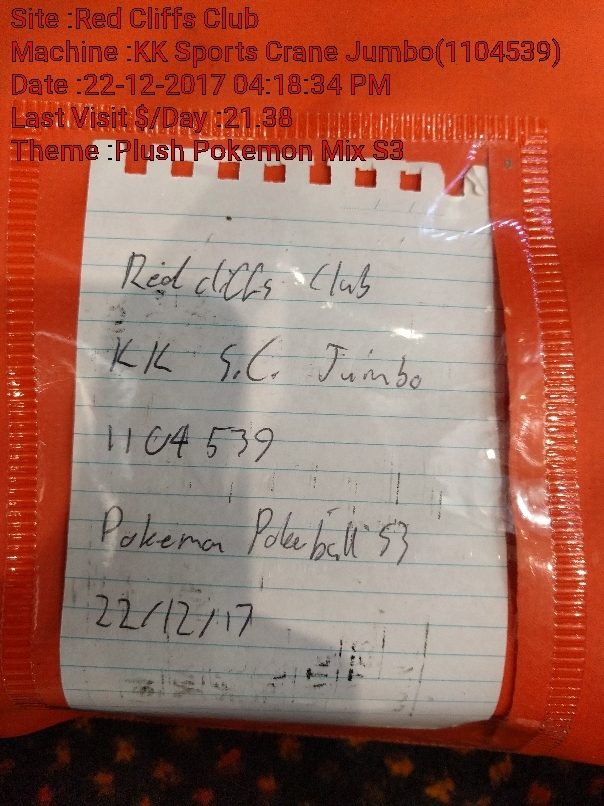 Site :Red Cliffs Club
Machine :KK Sports Crane Jumbo(1104539)
Date :22-12-2017 04:18:34 PM
Last Visit $/Day :21.38
Theme :Plush Pokemon Mix S3
Red cliffs Club
KK S.C. Jumbo
1104539
Pokemon Pokeball S3
22/12/17